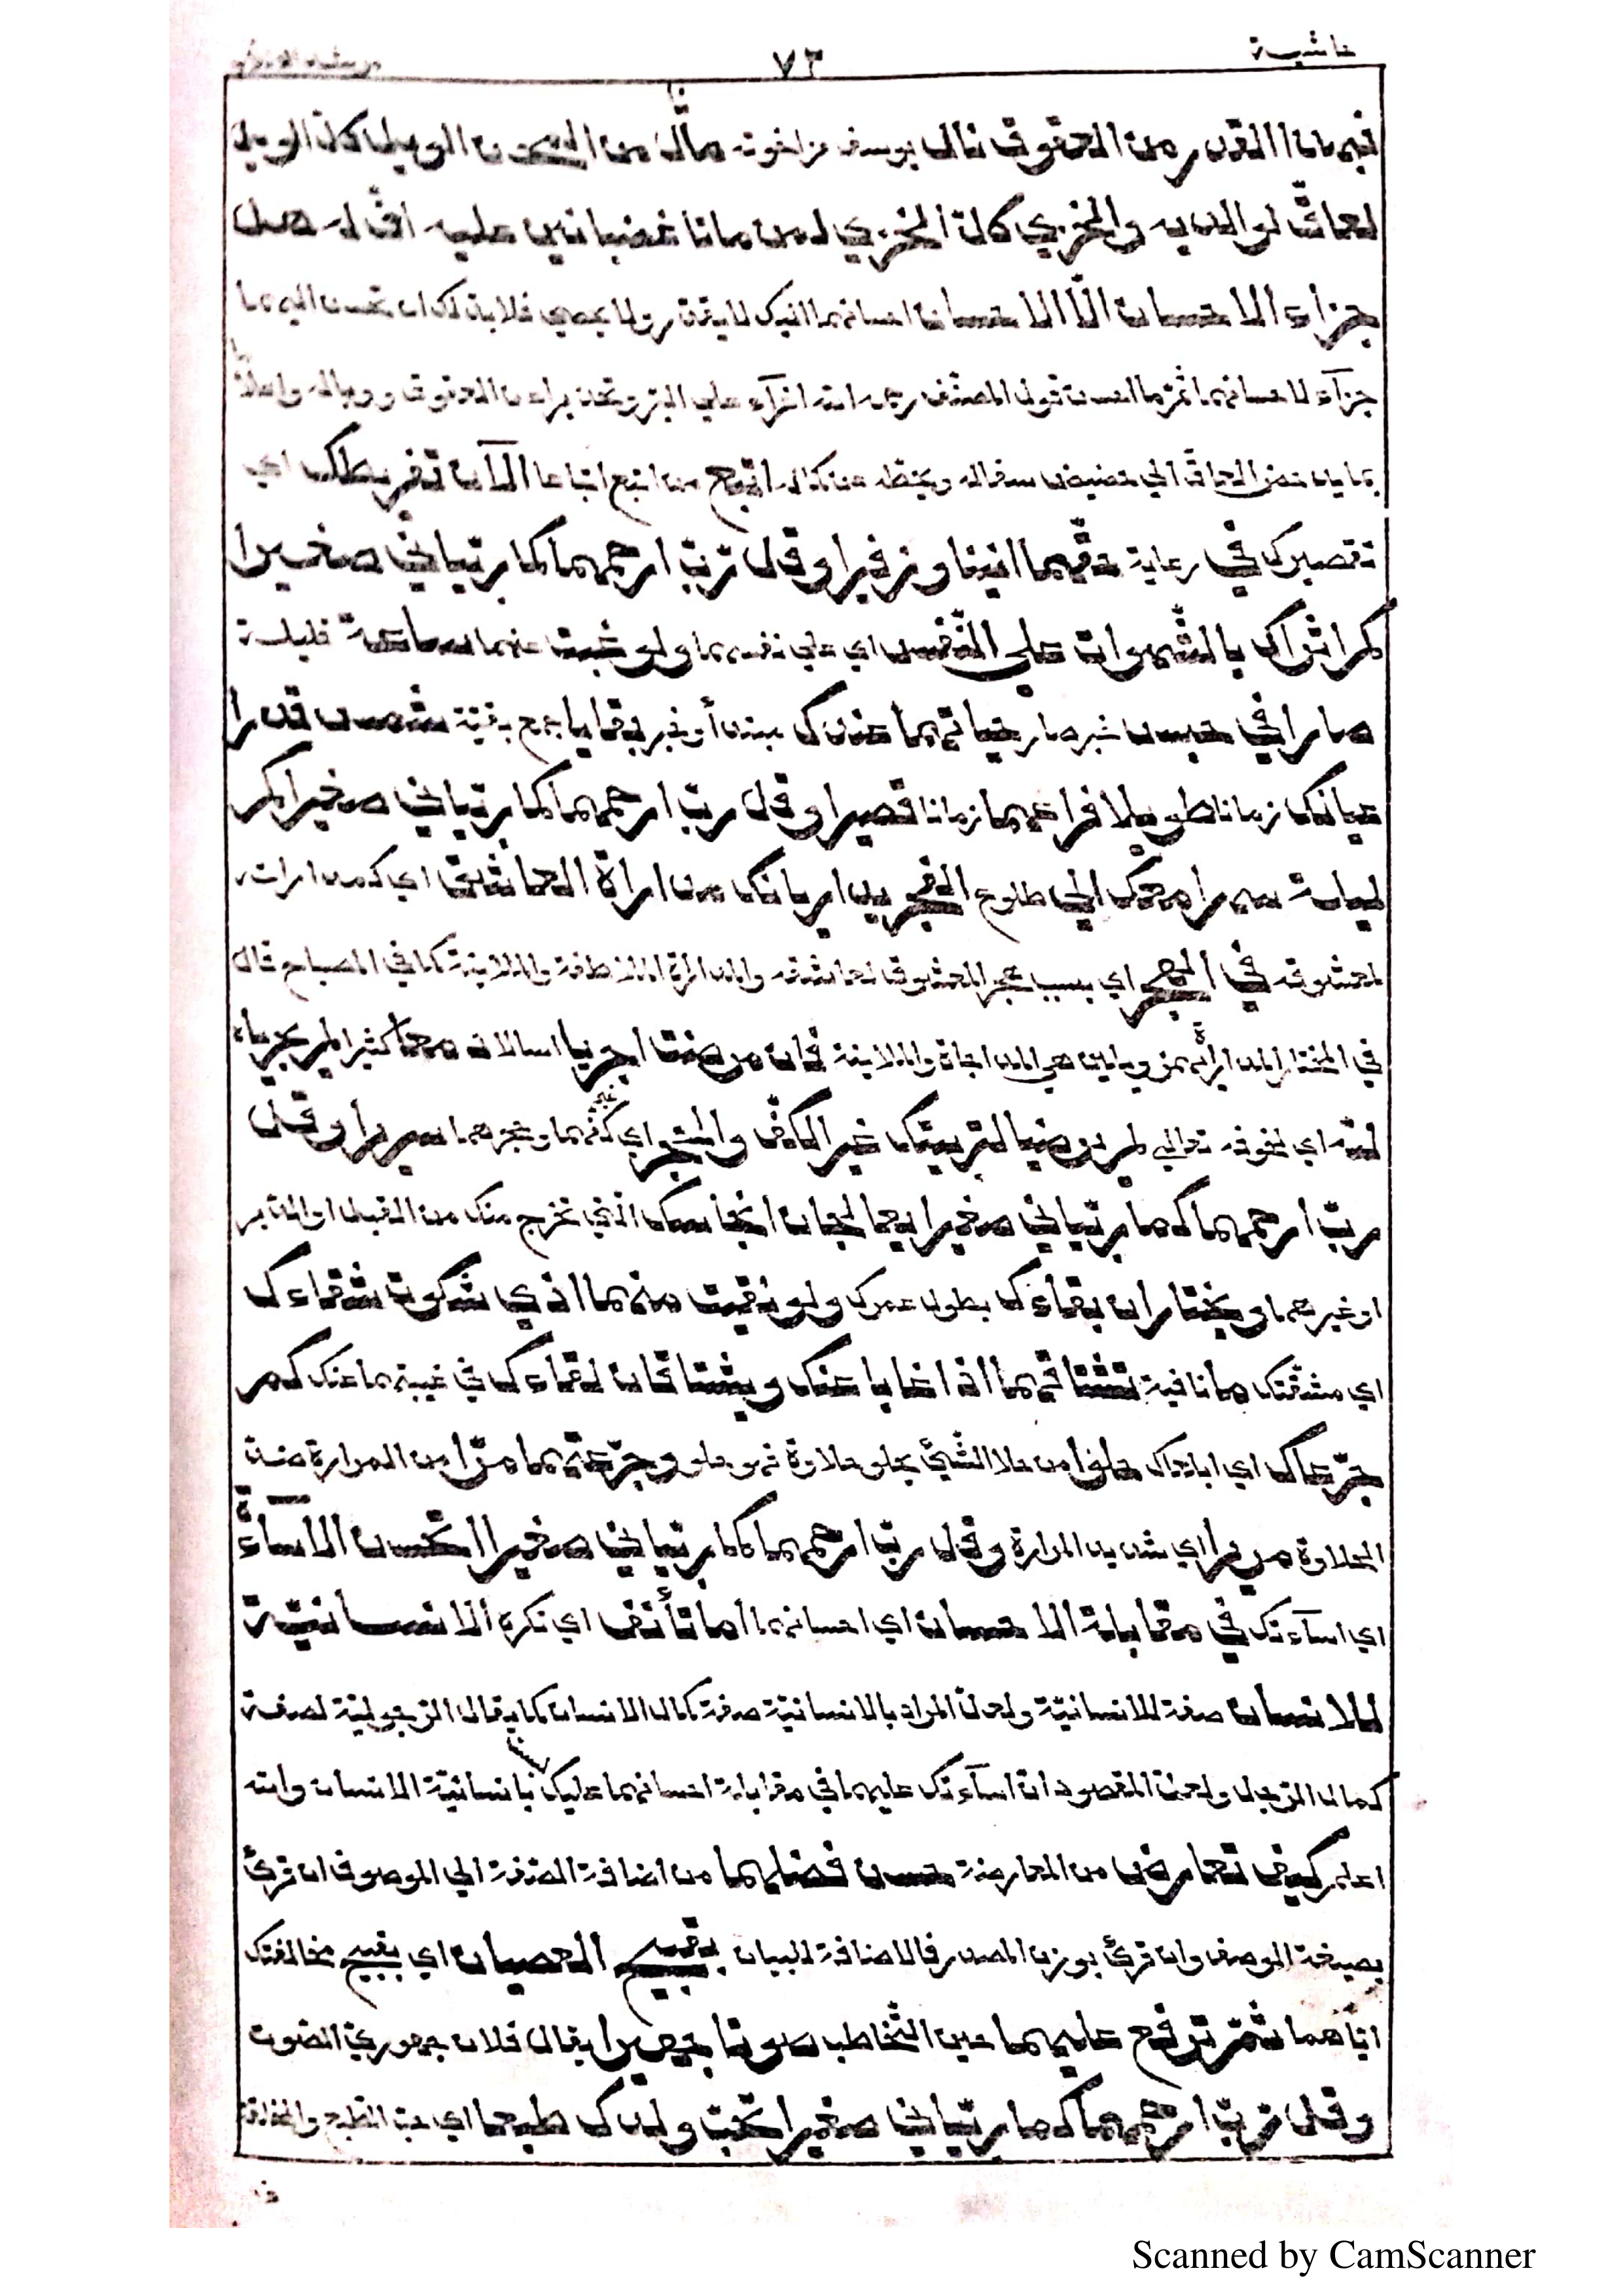 حاشية ٧٣
فبهذا القدر من العقوق نال يوسف من اخوته من السجون الويل كل الويل
لعاق لوالديه والخزي كل الخزي لمن ماتا غضبانين عليه اف له هل
جزاء الاحسان الا الاحسان احسانهما اليك لا يقدر ولا يحصى فلا بد لك ان تحسن اليهما
جزآء لاحسانهما ثم قول المصنف رحمه الله اغرآء على البر وتحذيرا عن العقوق ووباله
العاق الى حضيض اتبع من اتبع اتباعا الآن تفريطك اي
تقصيرك في رعاية حقهما انينا وزفيرا وقل رب ارحمهما كما ربياني صغيرا
كم اثراك بالشهوات على النفس اي على نفسهما ولو غبت عنهما ساعة قليلة
صارا في حبس حياتهما عندك بقايا جمع بقية شمس قدرا
عياك زمانا طويلا فراعهما زمانا قصيرا وقل رب ارحمهما كما ربياني صغيرا كم
ليلة سهرا معك الى طلوع الفجر يداريانك مداراة العاشق اي كمدارات
لمعشوقه في الهجر اي بسبب هجر المعشوق لعاشقه والمداراة الملاطفة والملاينة كما في المصباح قال
في المختار المداراة يهمز ويلين هي المداجاة والملاينة فان مرضت اجريا اسالا دمعا كثيرا لم يجريا
لله اي لخوفه تعالى لم يرضيا لتربيتك غير الكف والحجر اي كفهما وحجرهما سريرا وقل
رب ارحمهما كما ربياني صغيرا يعالجان انجاسك التي تخرج منك من القبل او الدبر
او غيرهما ويختاران بقاءك بطول عمرك ولو لقيت منهما اذى شكوت شقاءك
اي مشقتك ما نافية تشتاقهما اذا غابا عنك ويشتاقان لقاءك في غيبتهما عنك كم
جرعاك اي ابلعاك حلوا من حلا الشيء يحلو حلاوة فهو حلو وجرعتهما مرا من المرارة ضد
الحلاوة مريرا اي شديد المرارة وقل رب ارحمهما كما ربياني صغيرا اتحسن الاساءة
اي اسآءتك في مقابلة الاحسان اي احسانهما اما تأنف اي تكره الانسانية
للانسان صفة للانسانية ولعل المراد بالانسانية صفة كمال الانسان كما يقال الرجولية لصفة
كمال الرجل ولعل المقصود ان اسآءتك عليهما في مقابلة احسانهما عليك بانسانية الانسان والله
اعلم كيف تعارض من المعارضة حسن فضلهما من اضافة الصفة الى الموصوف ان قرئ
بصيغة الوصف وان قرئ بوزن المصدر فالاضافة للبيان بقبيح العصيان اي بقبيح مخالفتك
اياهما ثم ترفع عليهما حين التخاطب صوتا جهيرا يقال فلان جهوري الصوت
وقل رب ارحمهما كما ربياني صغيرا تحب ولدك طبعا اي حب الطبع والخلقة
Scanned by CamScanner